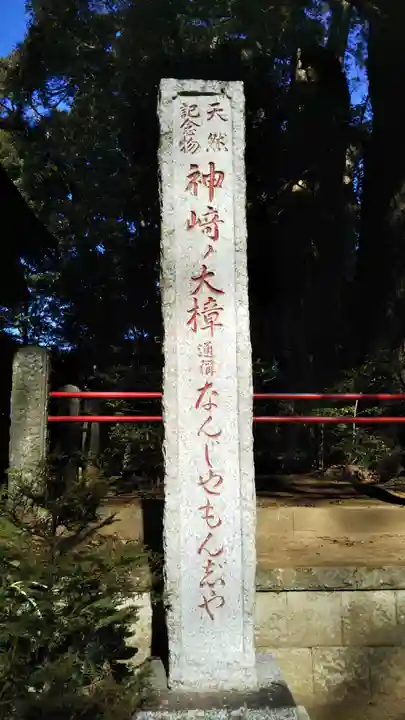 天然
記念物
神崎ノ大樟
通稱
なんじやもんじや